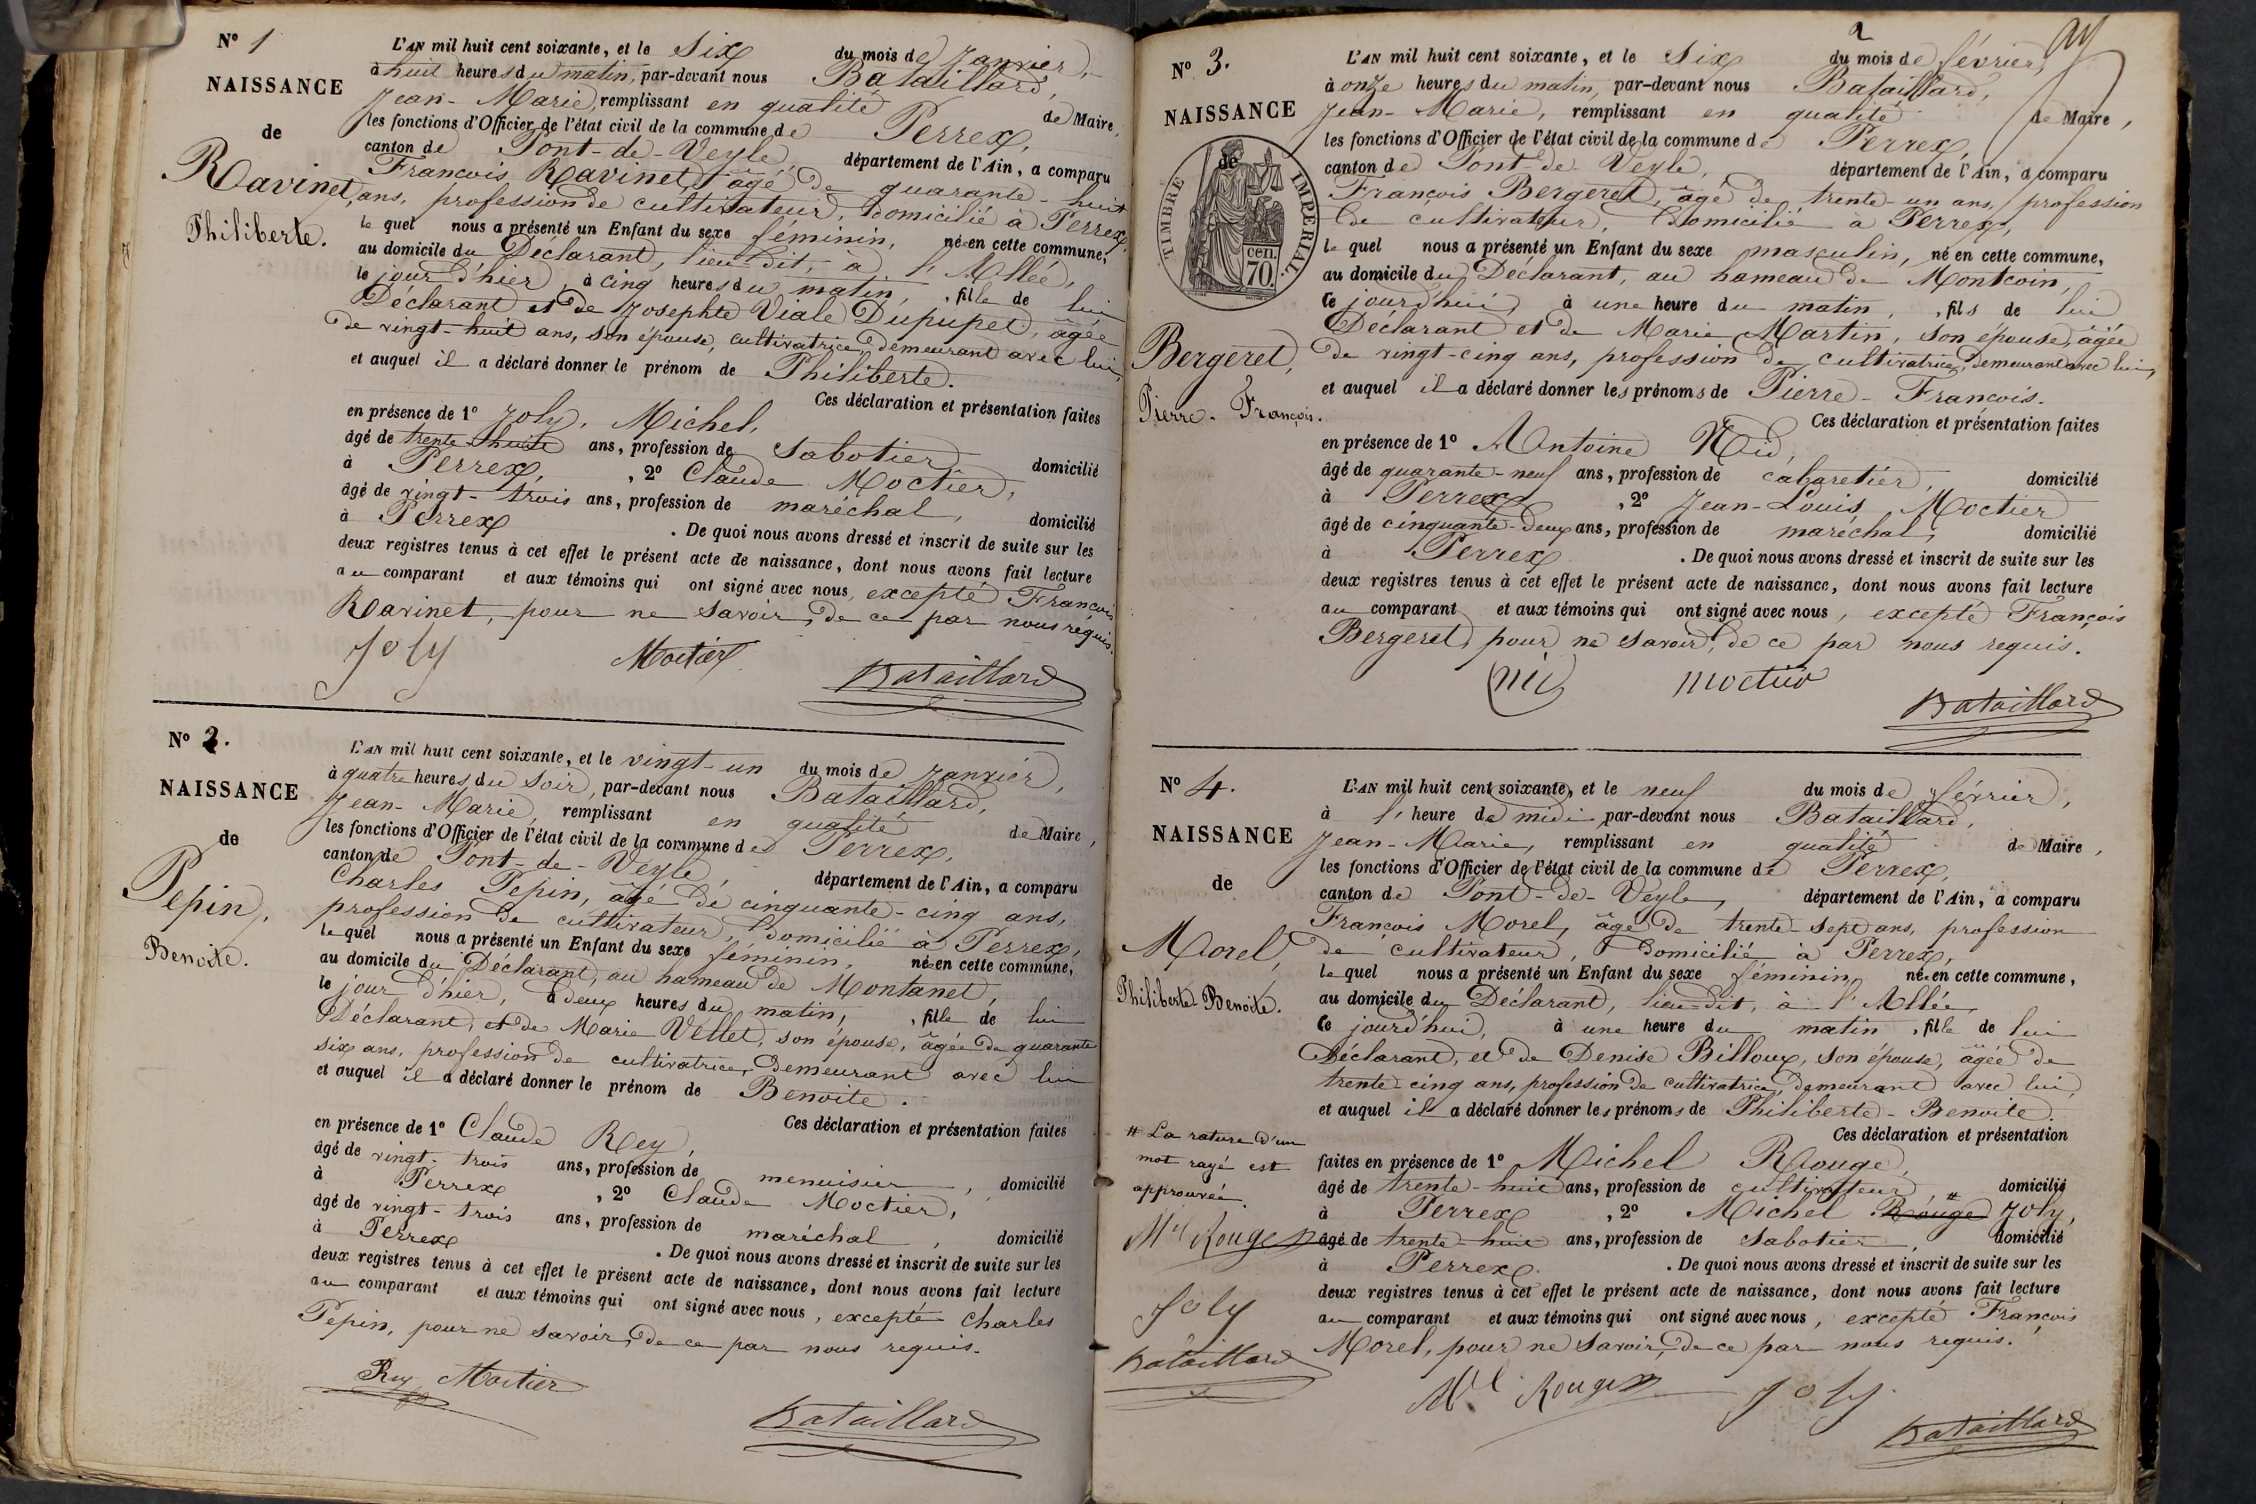 N° 1
NAISSANCE
de
Ravinet,
Philiberte.
L'AN mil huit cent soixante, et le Six du mois de Janvier,
à huit heures du matin, par-devant nous Bataillard,
Jean-Marie, remplissant en qualité de Maire,
les fonctions d'Officier de l'état civil de la commune de Perrex,
canton de Pont-de-Veyle, département de l'Ain, a comparu
François Ravinet, âgé de quarante-huit
ans, profession de cultivateur, domicilié à Perrex,
le quel nous a présenté un Enfant du sexe féminin, née en cette commune,
au domicile du Déclarant, lieu dit, à l'Allée,
le jour d'hier, à cinq heures du matin, , fille de lui
Déclarant et de Josephte Viale Dupupet, âgée
de vingt-huit ans, son épouse, cultivatrice, demeurant avec lui,
et auquel il a déclaré donner le prénom de Philiberte.
Ces déclaration et présentation faites
en présence de 1° Joly, Michel,
âgé de trente-huit ans, profession de sabotier domicilié
à Perrex, , 2° Claude Moctier,
âgé de vingt-trois ans, profession de maréchal, domicilié
à Perrex . De quoi nous avons dressé et inscrit de suite sur les
deux registres tenus à cet effet le présent acte de naissance, dont nous avons fait lecture
au comparant et aux témoins qui ont signé avec nous, excepté François
Ravinet, pour ne savoir, de ce par nous requis.
Joly Moctier Bataillard
N° 2.
NAISSANCE
de
Pepin,
Benoite.
L'AN mil huit cent soixante, et le vingt-un du mois de Janvier,
à quatre heures du soir, par-devant nous Bataillard,
Jean-Marie, remplissant en qualité de Maire,
les fonctions d'Officier de l'état civil de la commune de Perrex,
canton de Pont-de-Veyle, département de l'Ain, a comparu
Charles Pepin, âgé de cinquante-cinq ans,
profession de cultivateur, domicilié à Perrex,
le quel nous a présenté un Enfant du sexe féminin, née en cette commune,
au domicile du Déclarant, au hameau de Montanet,
le jour d'hier, à deux heures du matin, , fille de lui
Déclarant, et de Marie Vellet, son épouse, âgée de quarante
six ans, profession de cultivatrice, demeurant avec lui
et auquel il a déclaré donner le prénom de Benoite.
Ces déclaration et présentation faites
en présence de 1° Claude Rey,
âgé de vingt-trois ans, profession de menuisier, domicilié
à Perrex , 2° Claude Moctier,
âgé de vingt-trois ans, profession de maréchal, domicilié
à Perrex . De quoi nous avons dressé et inscrit de suite sur les
deux registres tenus à cet effet le présent acte de naissance, dont nous avons fait lecture
au comparant et aux témoins qui ont signé avec nous, excepté Charles
Pepin, pour ne savoir, de ce par nous requis.
Rey Moctier
Bataillard
2
N° 3.
NAISSANCE
de
TIMBRE IMPERIAL.
cen.
70.
Bergeret,
Pierre-François.
L'AN mil huit cent soixante, et le Six du mois de février,
à onze heures du matin, par-devant nous Bataillard,
Jean-Marie, remplissant en qualité de Maire,
les fonctions d'Officier de l'état civil de la commune de Perrex,
canton de Pont-de-Veyle, département de l'Ain, a comparu
François Bergeret, âgé de trente-un ans, profession
de cultivateur, domicilié à Perrex,
le quel nous a présenté un Enfant du sexe masculin, né en cette commune,
au domicile du Déclarant, au hameau de Montcoin,
Ce jourd'hui, à une heure du matin, , fils de lui
Déclarant et de Marie Martin, son épouse, âgée
de vingt-cinq ans, profession de cultivatrice, demeurant avec lui,
et auquel il a déclaré donner les prénoms de Pierre-François.
Ces déclaration et présentation faites
en présence de 1° Antoine Nid,
âgé de quarante-neuf ans, profession de cabaretier, domicilié
à Perrex , 2° Jean-Louis Moctier
âgé de cinquante-deux ans, profession de maréchal, domicilié
à Perrex . De quoi nous avons dressé et inscrit de suite sur les
deux registres tenus à cet effet le présent acte de naissance, dont nous avons fait lecture
au comparant et aux témoins qui ont signé avec nous, excepté François
Bergeret, pour ne savoir, de ce par nous requis.
nid moctier
Bataillard
N° 4.
NAISSANCE
de
Morel,
Philiberte-Benoite.
L'AN mil huit cent soixante, et le neuf du mois de février,
à l'heure de midi par-devant nous Bataillard,
Jean-Marie, remplissant en qualité de Maire,
les fonctions d'Officier de l'état civil de la commune de Perrex,
canton de Pont-de-Veyle, département de l'Ain, a comparu
François Morel, âgé de trente-sept ans, profession
de cultivateur, domicilié à Perrex,
le quel nous a présenté un Enfant du sexe féminin, née en cette commune,
au domicile du Déclarant, lieu dit, à l'Allée,
Ce jourd'hui, à une heure du matin , fille de lui
Déclarant, et de Denise Billoux, son épouse, âgée de
trente-cinq ans, profession de cultivatrice, demeurant avec lui,
et auquel il a déclaré donner les prénoms de Philiberte-Benoite.
Ces déclaration et présentation
faites en présence de 1° Michel Rouge,
âgé de trente-huit ans, profession de cultivateur, domicilié
à Perrex , 2° Michel Rouge # Joly,
âgé de trente-huit ans, profession de sabotier, domicilié
à Perrex. . De quoi nous avons dressé et inscrit de suite sur les
deux registres tenus à cet effet le présent acte de naissance, dont nous avons fait lecture
au comparant et aux témoins qui ont signé avec nous, excepté François
Morel, pour ne savoir, de ce par nous requis.
# La rature d'un
mot rayé est
approuvée
Mel Rouge
Joly
Bataillard
Mel Rouge Joly
Bataillard